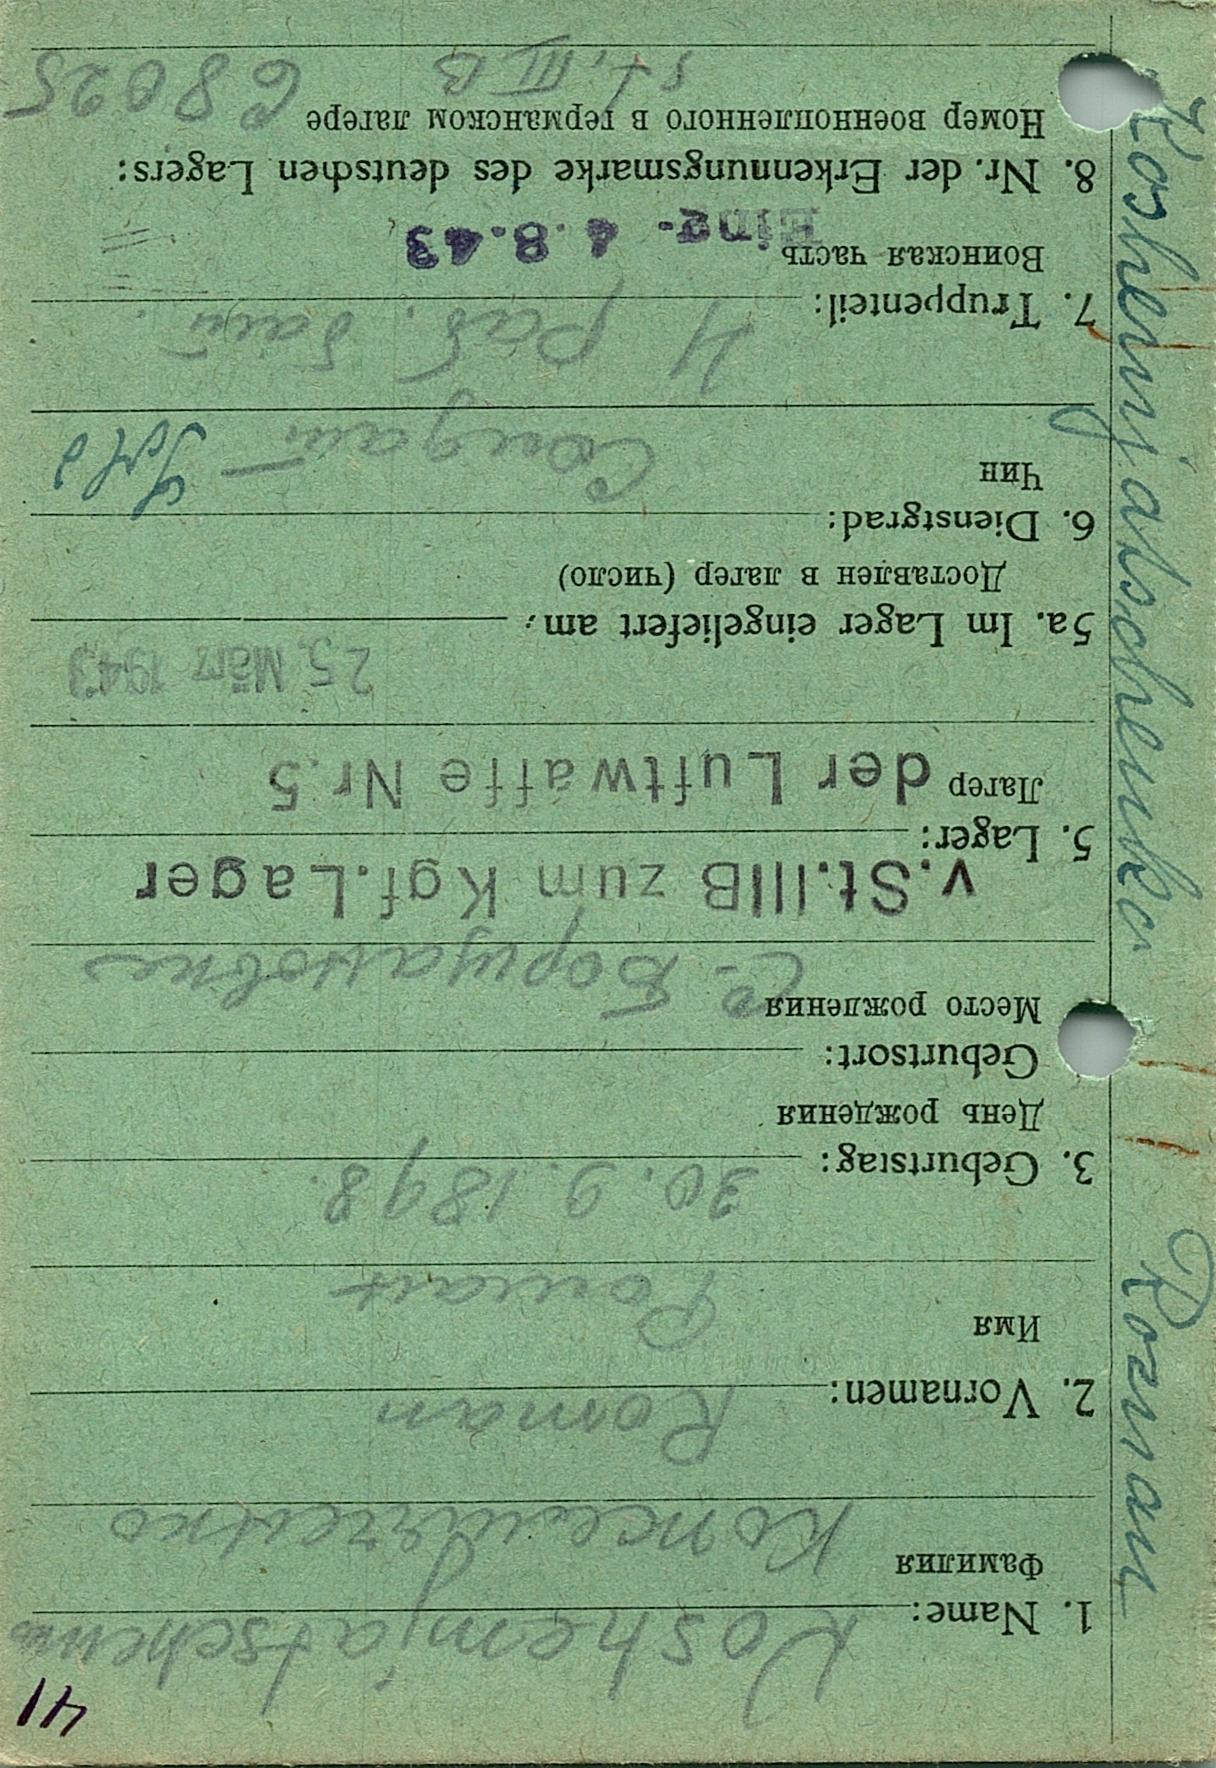 41
1. Name: Koshemjatschenko
Фамилия Кожемяченко
2. Vornamen: Roman
Имя Роман
3. Geburtstag: 30.9.1898.
День рождения
Geburtsort:
Место рождения с.
v.St.IIIB zum Kgf.Lager
5. Lager:
Лагер der Luftwaffe Nr.5
25. März 1943
5a. Im Lager eingeliefert am:
Доставлен в лагер (число)
6. Dienstgrad:
Чин Солдат
7. Truppenteil: 4 раб. бат.
Воинская часть
Eing. 4.8.43
8. Nr. der Erkennungsmarke des deutschen Lagers:
Номер военнопленного в германском лагере
St. III B 68025
Koshemjatschenko Roman